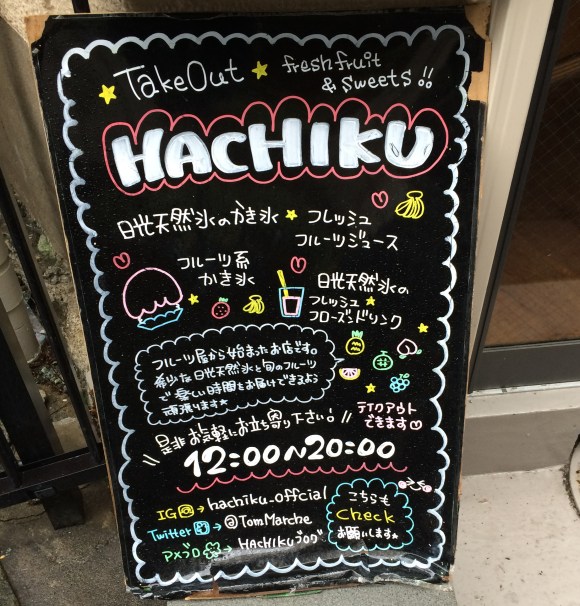 TakeOut
fresh fruit
& sweets!!
HACHIKU
日光天然氷のかき氷
フレッシュ
フルーツジュース
フルーツ系
かき氷
日光天然氷の
フレッシュ
フローズンドリンク
フルーツ屋から始まったお店です。
希少な日光天然氷と旬のフルーツ
で楽しい時間をお届けできるよう
頑張ります
テイクアウト
できます
是非お気軽にお立ち寄り下さい!
12:00~20:00
IG→hachiku_offcial
Twitter→@TomMarche
アメブロ→HACHIKUブログ
こちらも
Check
お願いします